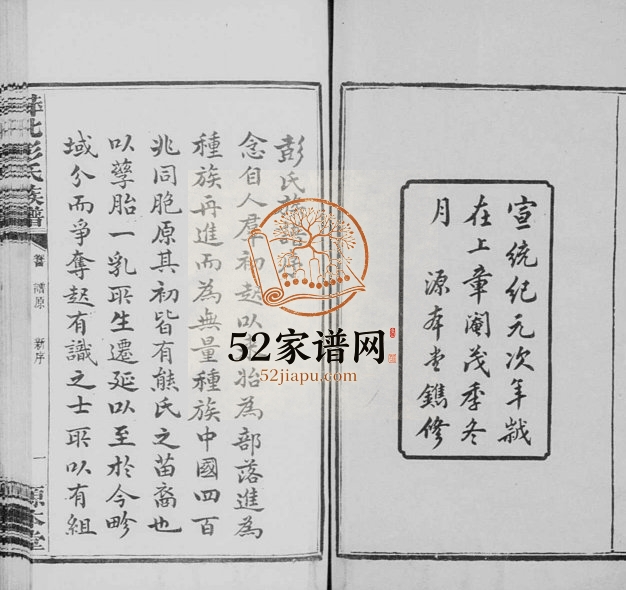 宣統紀元次年歲
在上章閹茂季冬
月 源本堂鐫修
彭氏族譜序
念自人羣初起以
胎為部落進為
種族再進而為無量種族中國四百
兆同胞原其初皆有熊氏之苗裔也
以孽胎一乳所生遷延以至於今畛
域分而爭奪起有識之士所以有組
彭氏族譜
卷首 譜原 新序
一 源本堂
52家谱网
52jiapu.com